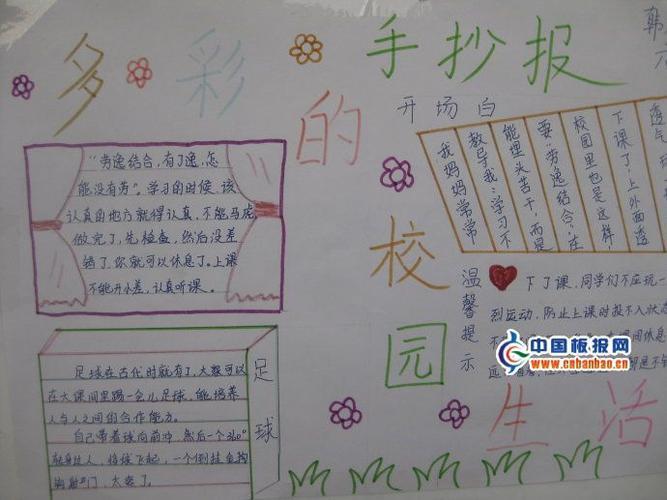 多彩的校园生活
手抄报
韩
开场白
我妈妈常常
教导我：学习不
能埋头苦干，而是
要"劳逸结合，在
校园里也是这样
下课了，上外面透
透气
"劳逸结合，有了逸，怎
能没有劳"，学习的时候，该
认真的地方就得认真，不能马虎
做完了，先检查，然后没差
错了，你就可以休息了。上课
不能开小差，认真听课。
温馨提示
下了课，同学们不应玩一
烈运动，防止上课时投不入状态
中国板报网
www.cnbanbao.cn
足球
足球在古代时就有了，大家可以
在大课间里踢一会儿足球，能培养
人与人之间的合作能力。
自己带着球向前冲，然后一个360°
转身过人，将球飞起，一个倒挂金钩
射门，太爽了。